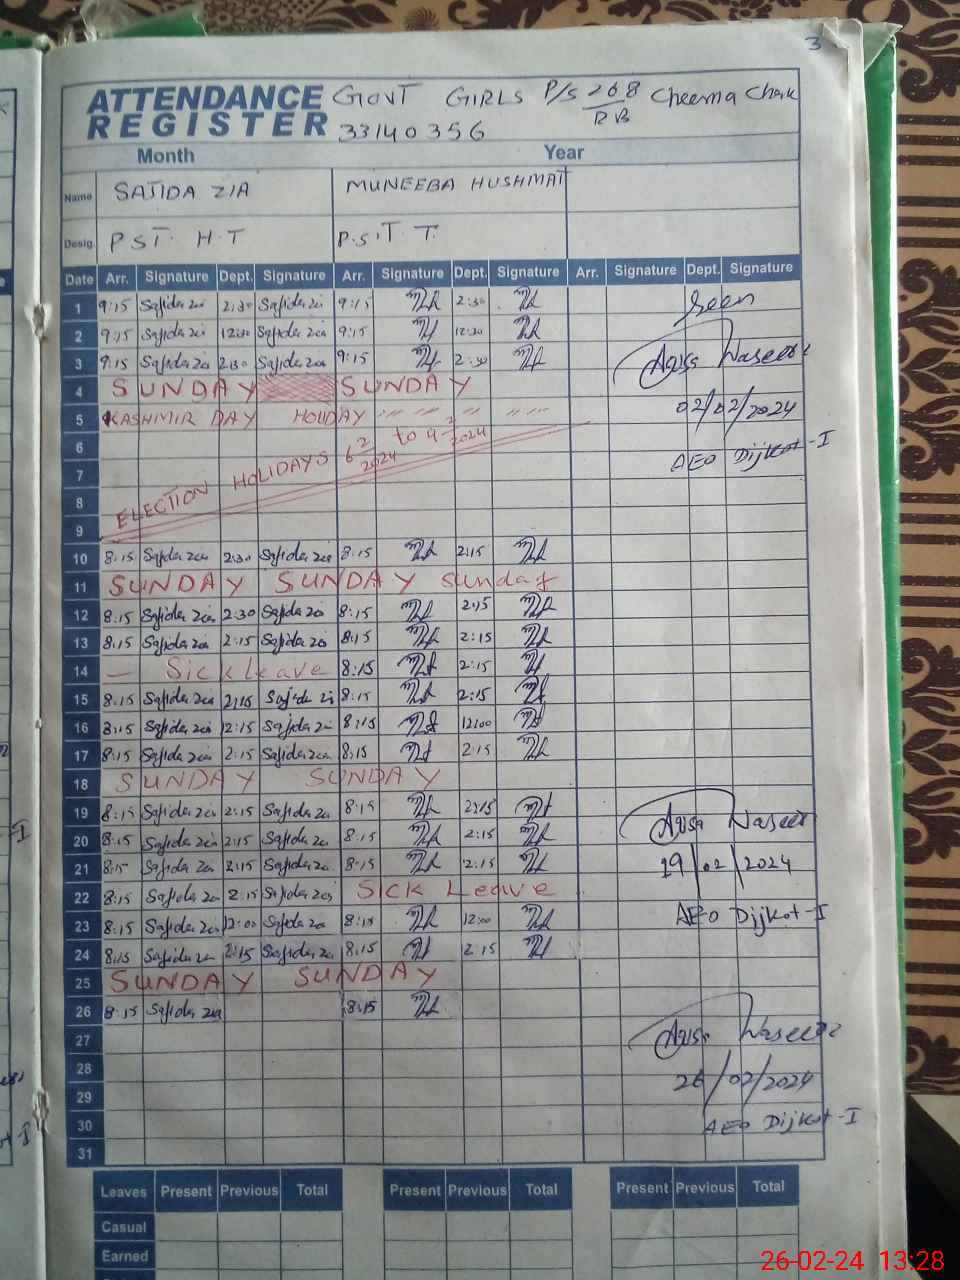 3
ATTENDANCE REGISTER GOVT GIRLS P/S 268 RB Cheema Chak
33140356
Month Year
Name SAJIDA ZIA MUNEEBA HUSHMAT
Desig. PST. H.T P.S.T. T.
Date Arr. Signature Dept. Signature Arr. Signature Dept. Signature Arr. Signature Dept. Signature
1 9:15 Sajida zia 2:30 Sajida zia 9:15 2:30 Seen
2 9:15 Sajida zia 12:30 Sajida zia 9:15 12:30
3 9:15 Sajida zia 2:30 Sajida zia 9:15 2:30 Aqsa Naseer
4 SUNDAY SUNDAY
5 KASHMIR DAY HOLIDAY 02/02/2024
6 ELECTION HOLIDAYS 6 2/2024 to 9 2/2024
7 AEO Dijkot-I
8
9
10 8:15 Sajida zia 2:30 Sajida zia 8:15 2:15
11 SUNDAY SUNDAY Sunday
12 8:15 Sajida zia 2:30 Sajida zia 8:15 2:15
13 8:15 Sajida zia 2:15 Sajida zia 8:15 2:15
14 — Sick leave 8:15 2:15
15 8:15 Sajida zia 2:15 Sajida zia 8:15 2:15
16 8:15 Sajida zia 12:15 Sajida zia 8:15 12:00
17 8:15 Sajida zia 2:15 Sajida zia 8:15 2:15
18 SUNDAY SUNDAY
19 8:15 Sajida zia 2:15 Sajida zia 8:15 2:15 Aqsa Naseer
20 8:15 Sajida zia 2:15 Sajida zia 8:15 2:15
21 8:15 Sajida zia 2:15 Sajida zia 8:15 2:15 19/02/2024
22 8:15 Sajida zia 2:15 Sajida zia Sick Leave
23 8:15 Sajida zia 12:00 Sajida zia 8:15 12:00 AEO Dijkot-I
24 8:15 Sajida zia 2:15 Sajida zia 8:15 2:15
25 SUNDAY SUNDAY
26 8:15 Sajida zia 8:15
27 Aqsa Naseer
28
29 26/02/2024
30 AEO Dijkot-I
31
Leaves Present Previous Total Present Previous Total Present Previous Total
Casual
Earned
26-02-24 13:28